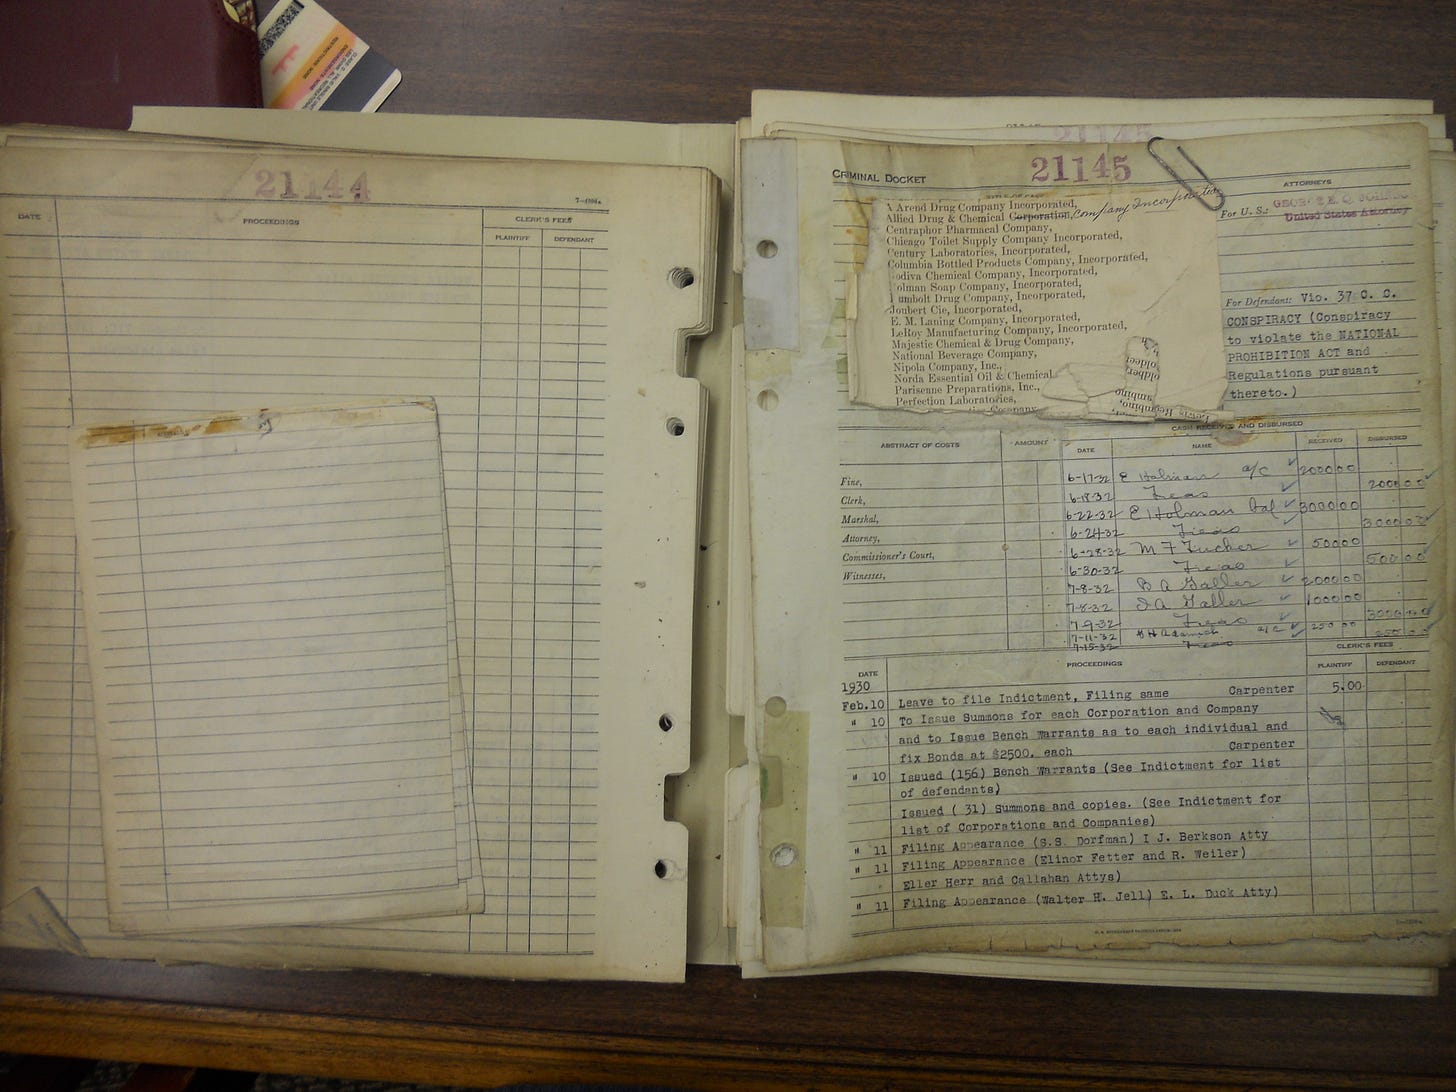 21144
7—4000a
DATE
PROCEEDINGS
CLERK'S FEES
PLAINTIFF
DEFENDANT
21145
21145
CRIMINAL DOCKET
ATTORNEYS
For U. S.: GEORGE E. Q. JOHNSON
United States Attorney
Arend Drug Company Incorporated,
Allied Drug & Chemical Corporation, Company Incorporated
Centraphor Pharmacal Company,
Chicago Toilet Supply Company Incorporated,
Century Laboratories, Incorporated,
Columbia Bottled Products Company, Incorporated,
odiva Chemical Company, Incorporated,
olman Soap Company, Incorporated,
umbolt Drug Company, Incorporated,
Joubert Cie, Incorporated,
E. M. Laning Company, Incorporated,
LeRoy Manufacturing Company, Incorporated,
Majestic Chemical & Drug Company,
National Beverage Company,
Nipola Company, Inc.,
Norda Essential Oil & Chemical
Parisenne Preparations, Inc.,
Perfection Laboratories,
Company
For Defendant: Vio. 37 C. C.
CONSPIRACY (Conspiracy
to violate the NATIONAL
PROHIBITION ACT and
Regulations pursuant
thereto.)
CASH RECEIVED AND DISBURSED
ABSTRACT OF COSTS
AMOUNT
DATE
NAME
RECEIVED
DISBURSED
Fine,
Clerk,
Marshal,
Attorney,
Commissioner's Court,
Witnesses,
6-17-32 E Holman a/c 2000 00
6-18-32 Treas 2000 00
6-22-32 E Holman Bal 3000 00
6-24-32 Treas 3000 00
6-28-32 M F Tucker 500 00
6-30-32 Treas 500 00
7-8-32 B A Galler 2000 00
7-8-32 I A Galler 1000 00
7-9-32 Treas 3000 00
7-11-32 a/c 250 00
7-15-32 Treas 250 00
DATE
PROCEEDINGS
CLERK'S FEES
PLAINTIFF
DEFENDANT
1930
Feb.10 Leave to file Indictment, Filing same Carpenter 5.00
" 10 To Issue Summons for each Corporation and Company
and to Issue Bench Warrants as to each individual and
fix Bonds at $2500. each Carpenter
" 10 Issued (156) Bench Warrants (See Indictment for list
of defendants)
Issued ( 31) Summons and copies. (See Indictment for
list of Corporations and Companies)
" 11 Filing Appearance (S.S. Dorfman) I J. Berkson Atty
" 11 Filing Appearance (Elinor Fetter and R. Weiler)
Eller Herr and Callahan Attys)
" 11 Filing Appearance (Walter H. Jell) E. L. Duck Atty)